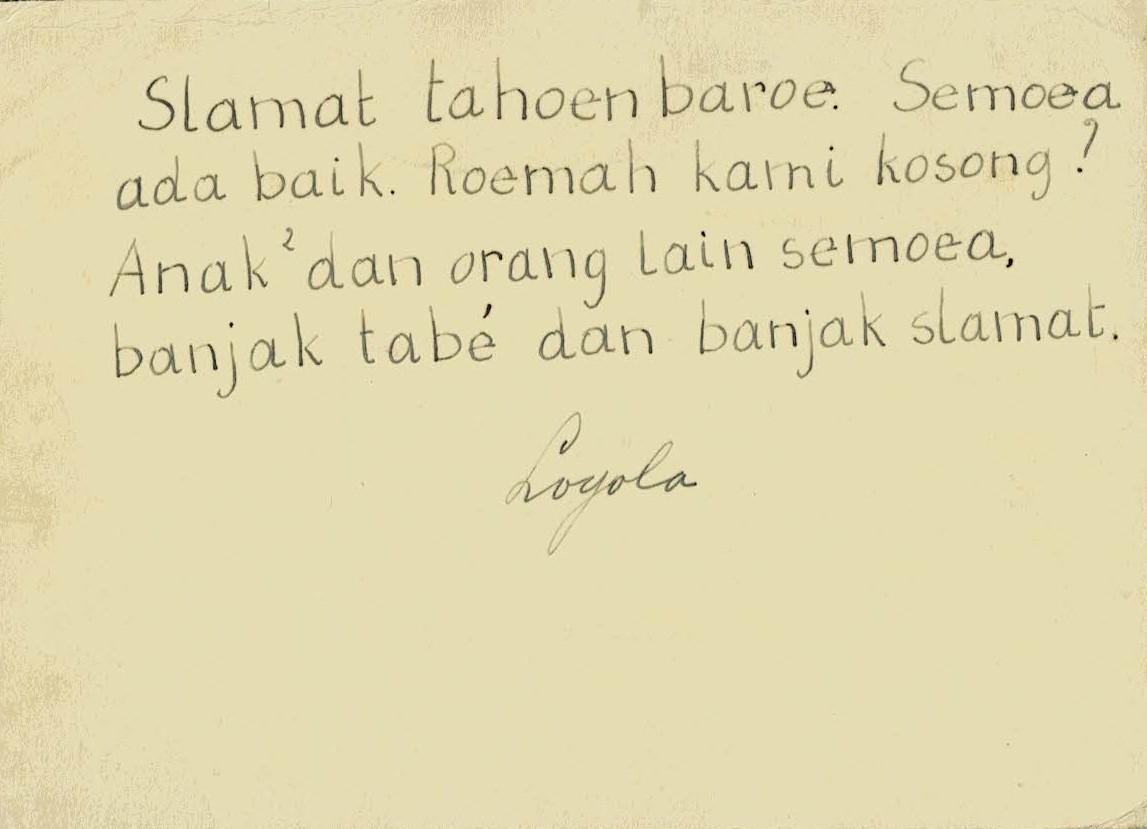 Slamat tahoen baroe. Semoea
ada baik. Roemah kami kosong?
Anak² dan orang lain semoea,
banjak tabé dan banjak slamat.
Loyola